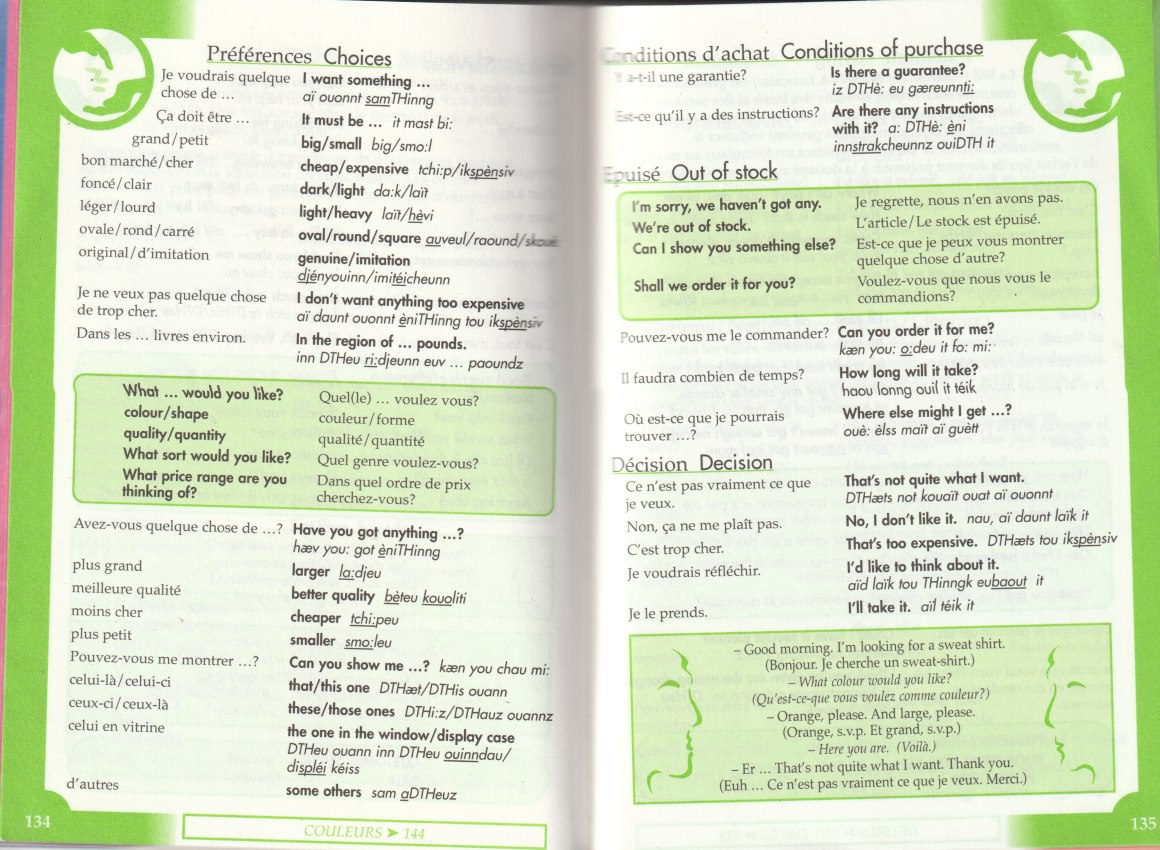 Préférences Choices
Je voudrais quelque chose de … I want something …
aï ouonnt samTHinng
Ça doit être … It must be … it mast bi:
grand/petit big/small big/smo:l
bon marché/cher cheap/expensive tchi:p/ikspènsiv
foncé/clair dark/light da:k/laït
léger/lourd light/heavy laït/hèvi
ovale/rond/carré oval/round/square auveul/raound/skouè
original/d'imitation genuine/imitation
djényouinn/imitéicheunn
Je ne veux pas quelque chose I don't want anything too expensive
de trop cher. aï daunt ouonnt èniTHinng tou ikspènsiv
Dans les … livres environ. In the region of … pounds.
inn DTHeu ri:djeunn euv … paoundz
What … would you like? Quel(le) … voulez vous?
colour/shape couleur/forme
quality/quantity qualité/quantité
What sort would you like? Quel genre voulez-vous?
What price range are you Dans quel ordre de prix
thinking of? cherchez-vous?
Avez-vous quelque chose de …? Have you got anything …?
hæv you: got èniTHinng
plus grand larger la:djeu
meilleure qualité better quality bèteu kouoliti
moins cher cheaper tchi:peu
plus petit smaller smo:leu
Pouvez-vous me montrer …? Can you show me …? kæn you chau mi:
celui-là/celui-ci that/this one DTHæt/DTHis ouann
ceux-ci/ceux-là these/those ones DTHi:z/DTHauz ouannz
celui en vitrine the one in the window/display case
DTHeu ouann inn DTHeu ouinndau/
displéi kéiss
d'autres some others sam aDTHeuz
134
COULEURS ➤ 144
Conditions d'achat Conditions of purchase
Y a-t-il une garantie? Is there a guarantee?
iz DTHè: eu gæreunnti:
Est-ce qu'il y a des instructions? Are there any instructions
with it? a: DTHè: èni
innstrakcheunnz ouiDTH it
Epuisé Out of stock
I'm sorry, we haven't got any. Je regrette, nous n'en avons pas.
We're out of stock. L'article/Le stock est épuisé.
Can I show you something else? Est-ce que je peux vous montrer
quelque chose d'autre?
Shall we order it for you? Voulez-vous que nous vous le
commandions?
Pouvez-vous me le commander? Can you order it for me?
kæn you: o:deu it fo: mi:
Il faudra combien de temps? How long will it take?
haou lonng ouil it téik
Où est-ce que je pourrais Where else might I get …?
trouver …? ouè: èlss maït aï guètt
Décision Decision
Ce n'est pas vraiment ce que That's not quite what I want.
je veux. DTHæts not kouaït ouat aï ouonnt
Non, ça ne me plaît pas. No, I don't like it. nau, aï daunt laïk it
C'est trop cher. That's too expensive. DTHæts tou ikspènsiv
Je voudrais réfléchir. I'd like to think about it.
aïd laïk tou THinngk eubaout it
Je le prends. I'll take it. aïl téik it
– Good morning. I'm looking for a sweat shirt.
(Bonjour. Je cherche un sweat-shirt.)
– What colour would you like?
(Qu'est-ce-que vous voulez comme couleur?)
– Orange, please. And large, please.
(Orange, s.v.p. Et grand, s.v.p.)
– Here you are. (Voilà.)
– Er … That's not quite what I want. Thank you.
(Euh … Ce n'est pas vraiment ce que je veux. Merci.)
135